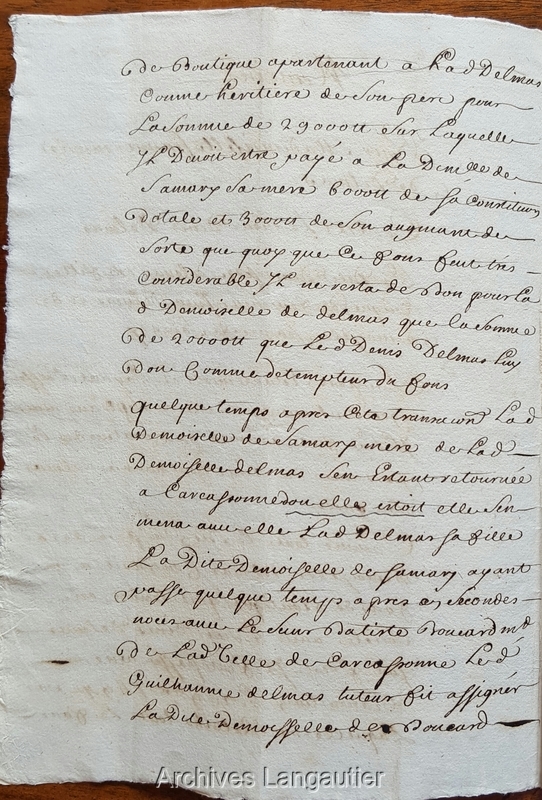 de Boutique apartenant a Lad Delmas
Comme heritiere de Son pere pour
La Somme de 29000tt Sur Laquelle
Il Devoit estre payé a La Demlle de
Samary Sa mere 6000tt de sa Constitution
dotale et 3000tt de Son augmant de
Sorte que quoy que Ce fons feut tres
Considerable Il ne resta de Bon pour La
d Demoiselle de delmas que la Somme
de 20000tt que Led Denis Delmas Luy
dou Comme detempteur du fons
quelque temps apres Cete transaon Lad
Demoiselle de Samary mere de Lad
Demoiselle delmas Sen Estant retournée
a Carcassonne dou elle estoit elle Sen
mena avec elle Lad Delmas sa fille
La Dite Demoiselle de Samary ayant
passe quelque temps apres a Secondes
noces avec Le Sieur Batiste Boucard md
de Lad Ville de Carcassonne Led
Guilhaume delmas tuteur fit assigner
La Dite Demoisselle de Boucard
Archives Langautier